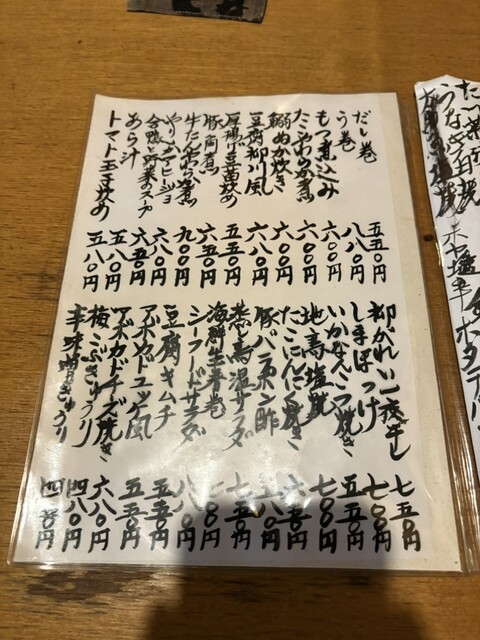 だし巻 五五〇円
う巻 八八〇円
もつ煮込み 六〇〇円
たこやわらか煮 六〇〇円
鰯ぬか炊き 六〇〇円
豆腐柳川風 六八〇円
厚揚げ豆苗炒め 五五〇円
豚角煮 六五〇円
牛たんやわらか煮 九〇〇円
やりいかアヒージョ 六八〇円
合鴨と野菜のスープ 六五〇円
あら汁 五八〇円
トマト玉子炒め 五八〇円
柳かれい一夜干し 七五〇円
しまほっけ 七〇〇円
いかなんこつ焼き 五五〇円
地鳥塩焼 七〇〇円
たこにんにく焼き 六五〇円
豚バラポン酢 五八〇円
蒸し鳥温サラダ 七五〇円
海鮮生春巻
シーフードサラダ 八八〇円
豆腐キムチ 五五〇円
アボカドユッケ風 五五〇円
アボカドチーズ焼き 六八〇円
梅こぶきゅうり 四八〇円
辛味噌きゅうり